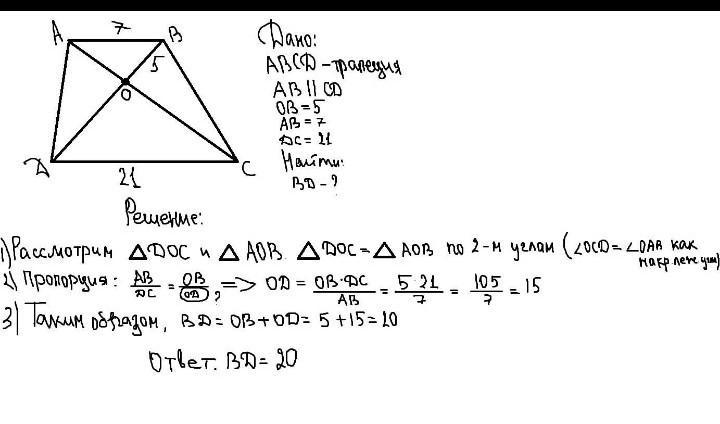 A 7 B
5
O
D C
21
Дано:
ABCD - трапеция
AB || CD
OB = 5
AB = 7
DC = 21
Найти:
BD - ?
Решение:
1) Рассмотрим △DOC и △AOB. △DOC = △AOB по 2-м углам (∠OCD = ∠OAB как
накр лежащ)
2) Пропорция: AB/DC = OB/OD, => OD = OB·DC/AB = 5·21/7 = 105/7 = 15
3) Таким образом, BD = OB + OD = 5 + 15 = 20
Ответ. BD = 20